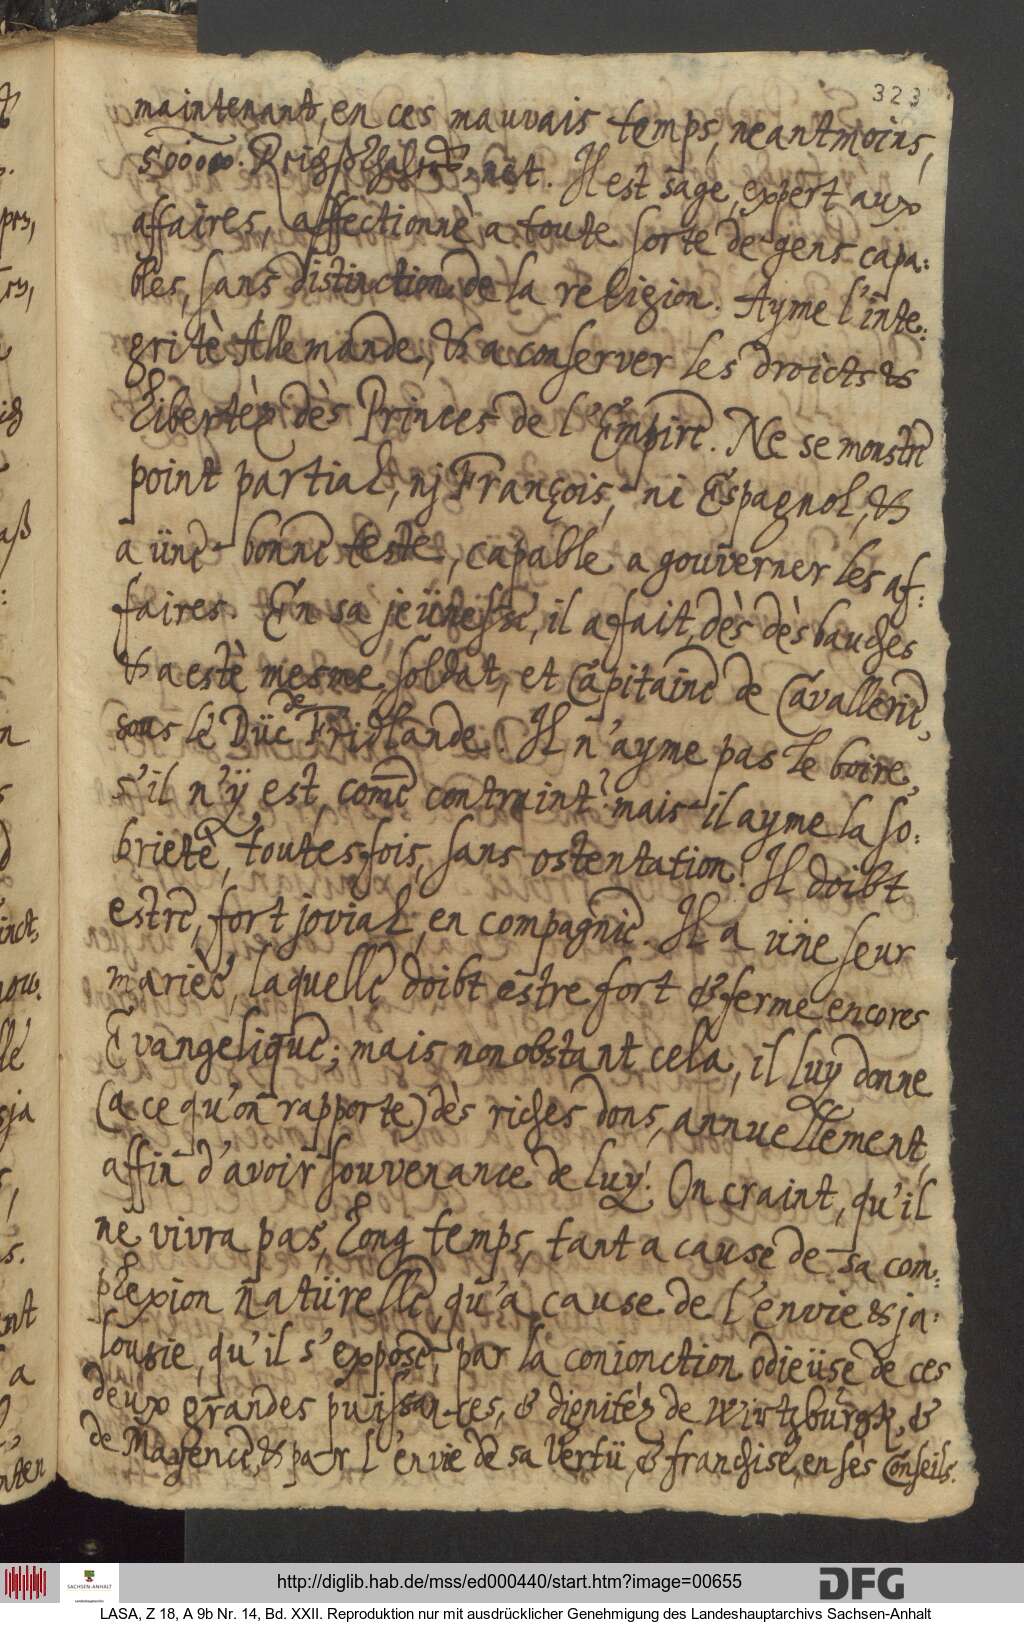 323
maintenant, en ces mauvais temps, neantmoins,
50000. Reichsthaler, net. Il est sage, expert aux
affaires, affectionnè a toute sorte de gens capa:
bles, sans distinction de la religion. Ayme l'inte:
gritè Allemande, & a conserver les droicts &
libertèz dès Princes de l'Empire. Ne se monstre
point partial, nj François, ni Espagnol, &
a üne bonne teste, capable a gouverner les af:
faires. En sa jeünesse, il a fait, dès dèsbauches
& a estè mesme, soldat, et Capitaine de Cavallerie,
sous le Düc de Fridlande. Il n'ayme pas le boire,
s'il n'ÿ est, come contraint? mais il ayme la so:
brietè, toutesfois, sans ostentation! Il doibt
estre, fort jovial, en compagnie. Il a üne seur
marièe, laquelle doibt estre fort & ferme encores
Evangelique; mais nonobstant cela, il luy donne
(a ce qu'on rapporte) dès riches dons, annuellement,
affin d'avoir souvenance de luy! On craint, qu'il
ne vivra pas, long temps, tant a cause de sa com:
plexion natürelle, qu'a cause de l'envie & ja:
lousie, qu'il s'expose, par la conionction odieüse de ces
deux grandes puissances, & dignitéz de Wirtzburgk, &
de Mayence, & par l'envie de sa vertü, & franchise, en sès Conseils.
http://diglib.hab.de/mss/ed000440/start.htm?image=00655
DFG
SACHSEN-ANHALT
LASA, Z 18, A 9b Nr. 14, Bd. XXII. Reproduktion nur mit ausdrücklicher Genehmigung des Landeshauptarchivs Sachsen-Anhalt